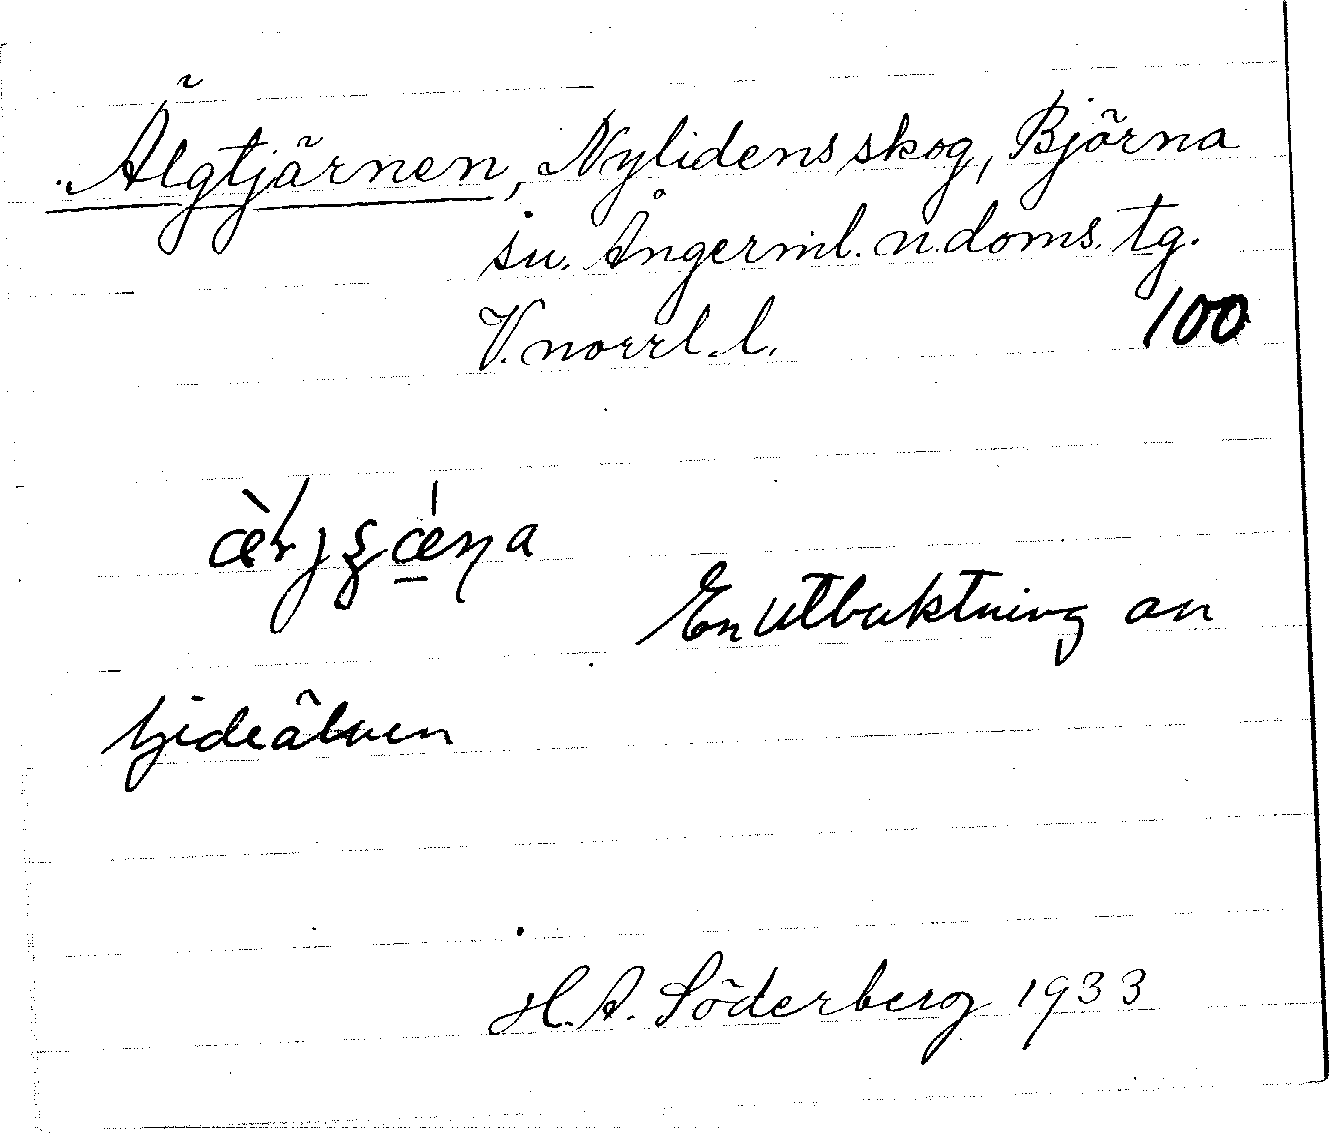 Älgtjärnen, Nylidens skog, Björna
sn. Ångerml. n. doms. tg.
V. norrl. l. 100
En utbuktning av
Gideälven
H. A. Söderberg 1933